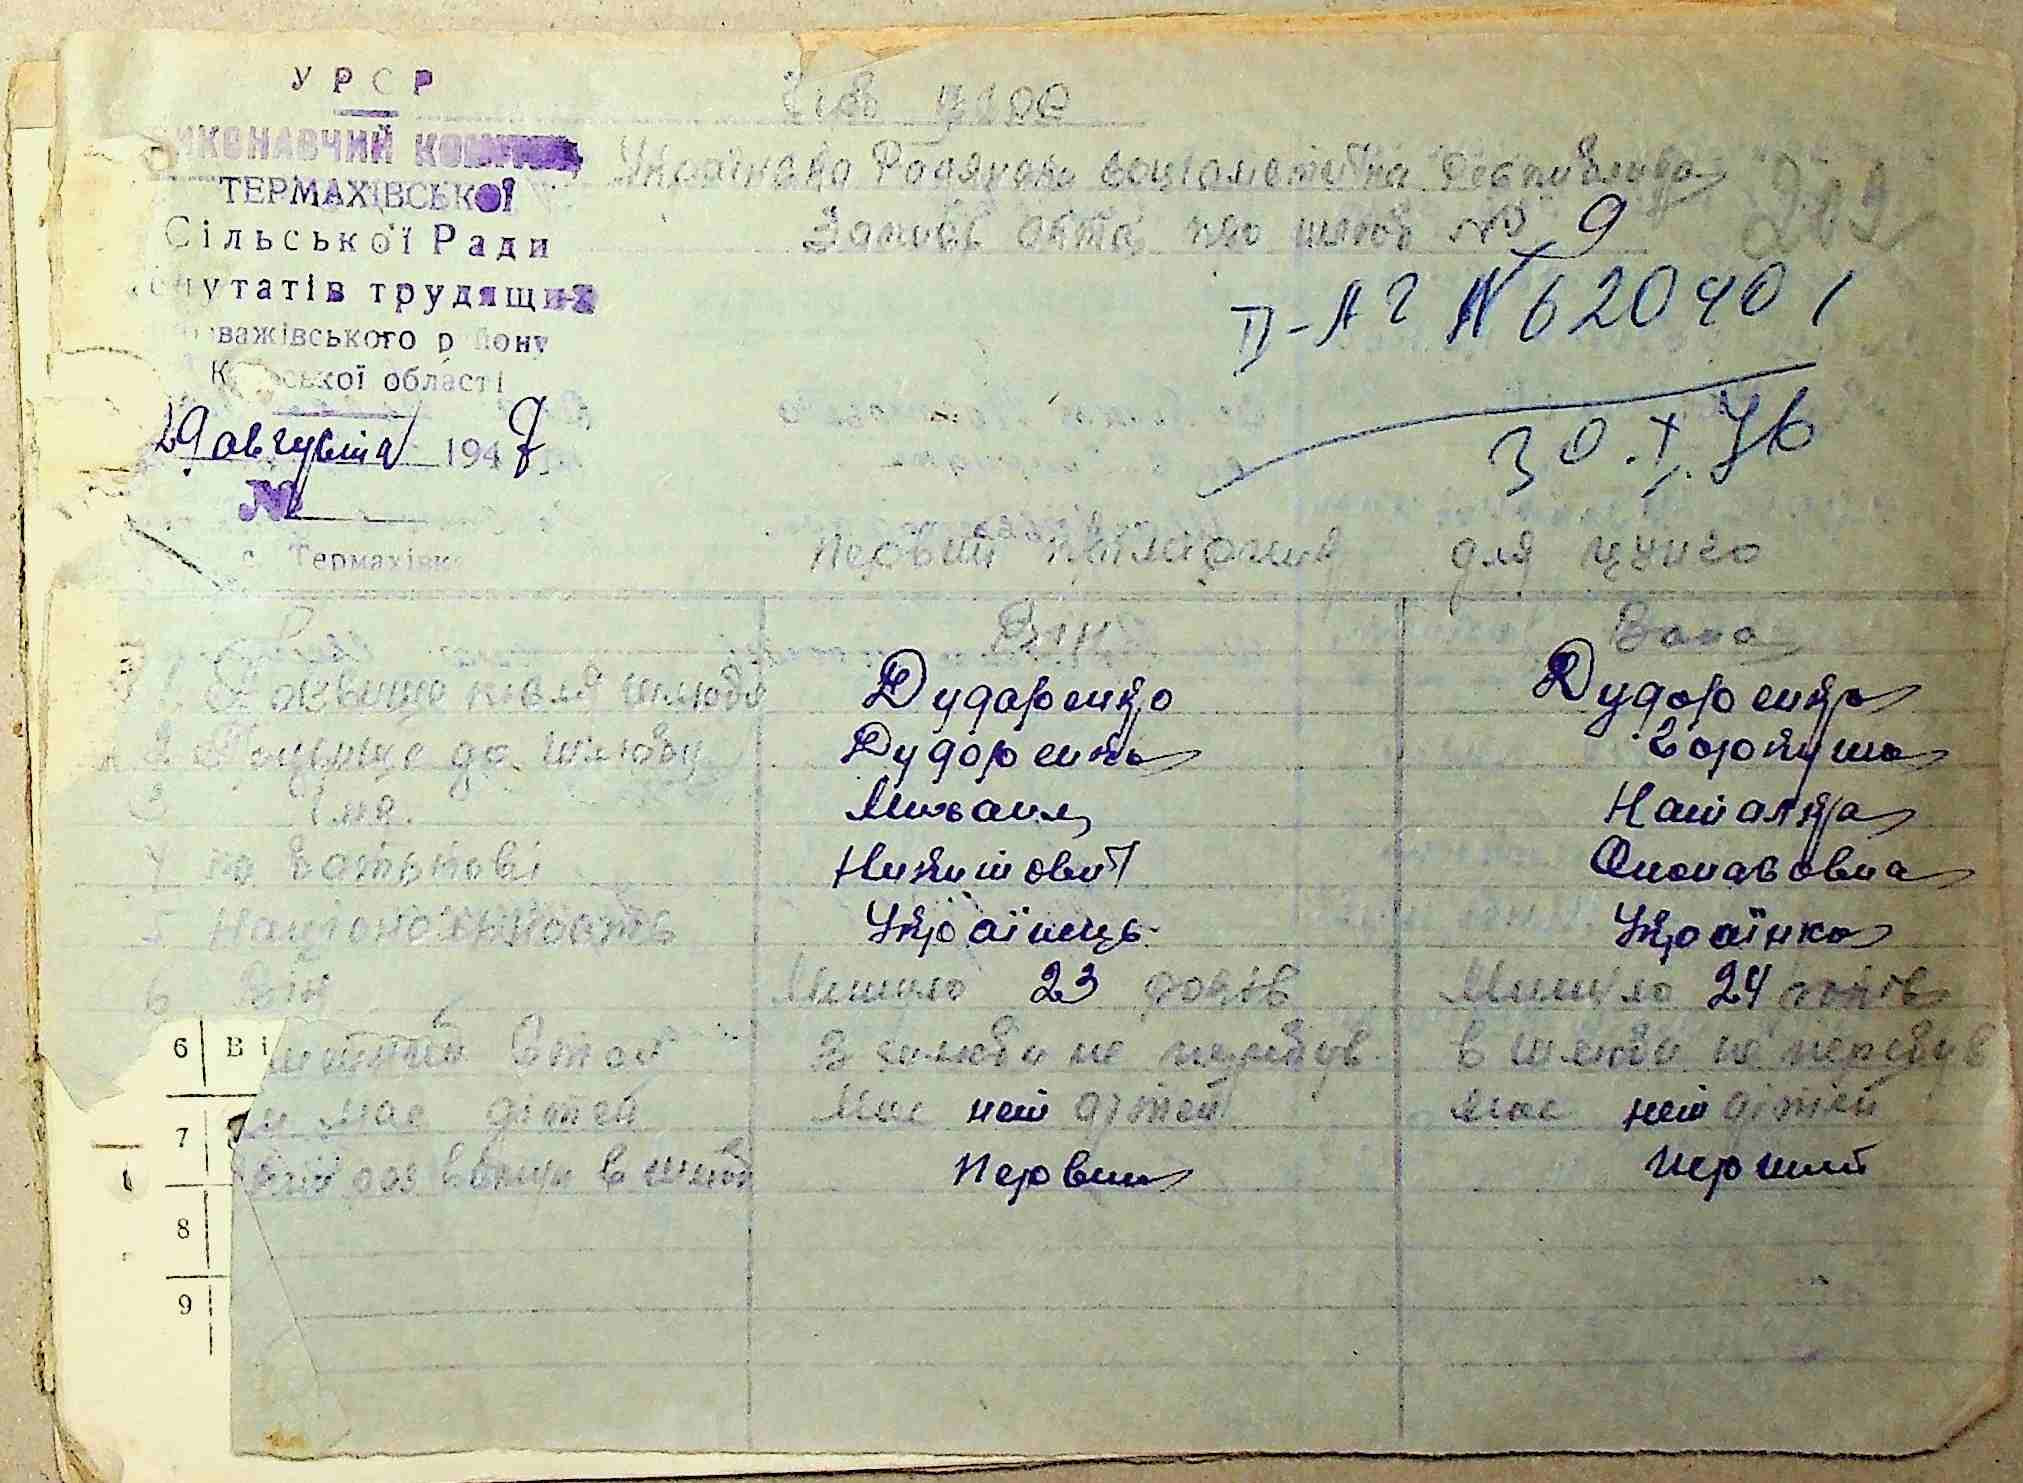 УРСР
ВИКОНАВЧИЙ
ТЕРМАХІВСЬКОЇ
Сільської Ради
депутатів трудящих
важівського району
Київської області
29 августа 1947
№
с. Термахівка
Українська Радянська Соціалістична Республіка
Запись акта про шлюб № 9
219
II-АГ № 620401
30.X.76
Первий для
Він Вона
1. після шлюбу Дударенко Дударенко
2 до шлюбу Дударенко Горкуша
3 Імя. Михаил Наталка
4 по батькові Никитович Опонасовна
5 Національность Українець Українка
6 Вік Минуло 23 років Минуло 24 років
6 Ві
в шлюбі не перебув в шлюбі не перебув
7 має дітей Має нет дітей має нет дітей
раз в шлюб Первий перший
8
9